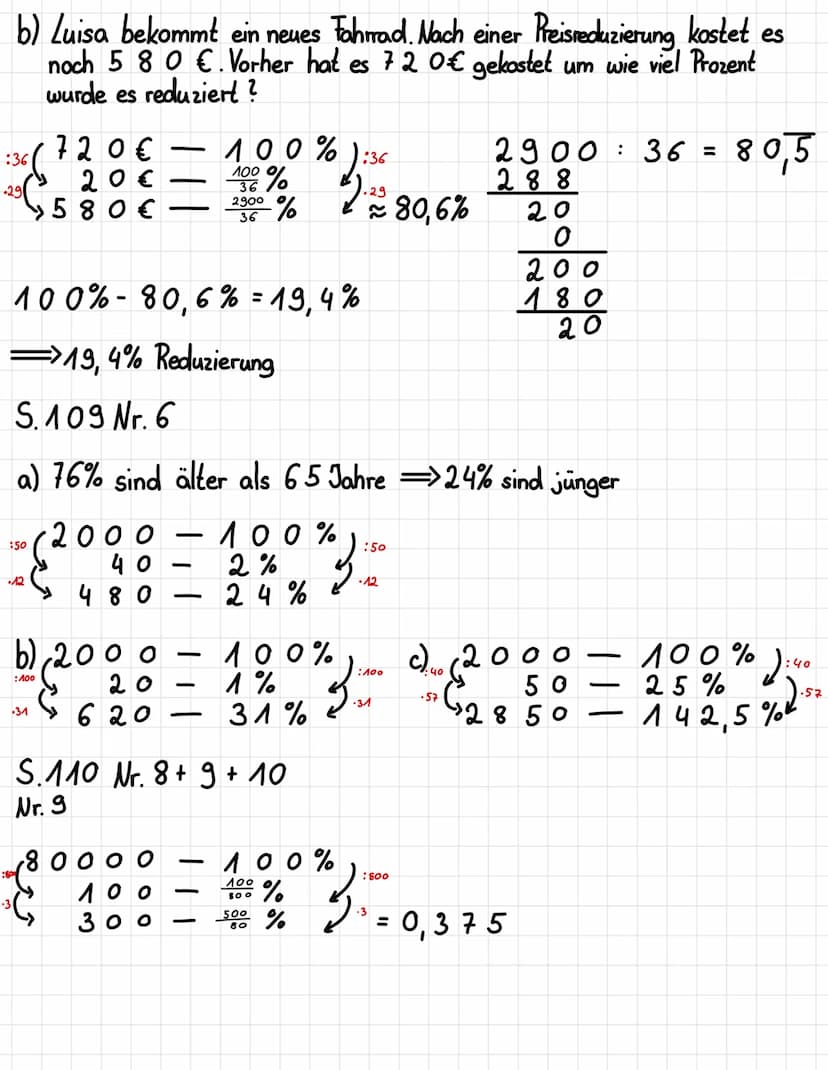 b) Luisa bekommt ein neues Fahrrad. Nach einer Preisreduzierung kostet es
noch 580 €. Vorher hat es 720€ gekostet um wie viel Prozent
wurde es reduziert?
:36 720€ — 100% :36
·29 20€ — 100/36 % ·29
580€ — 2900/36 % ≈ 80,6%
2900 : 36 = 80,5̅
288
20
0
200
180
20
100% - 80,6% = 19,4%
⟹ 19,4% Reduzierung
S. 109 Nr. 6
a) 76% sind älter als 65 Jahre ⟹ 24% sind jünger
:50 2000 — 100% :50
·12 40 — 2% ·12
480 — 24%
b) 2000 — 100%
:100 20 — 1% :100
·31 620 — 31% ·31
c) 2000 — 100% :40
:40 50 — 25%
·57 2850 — 142,5% ·57
S. 110 Nr. 8 + 9 + 10
Nr. 9
80000 — 100% :800
100 — 100/800 %
·3 300 — ·3 = 0,375